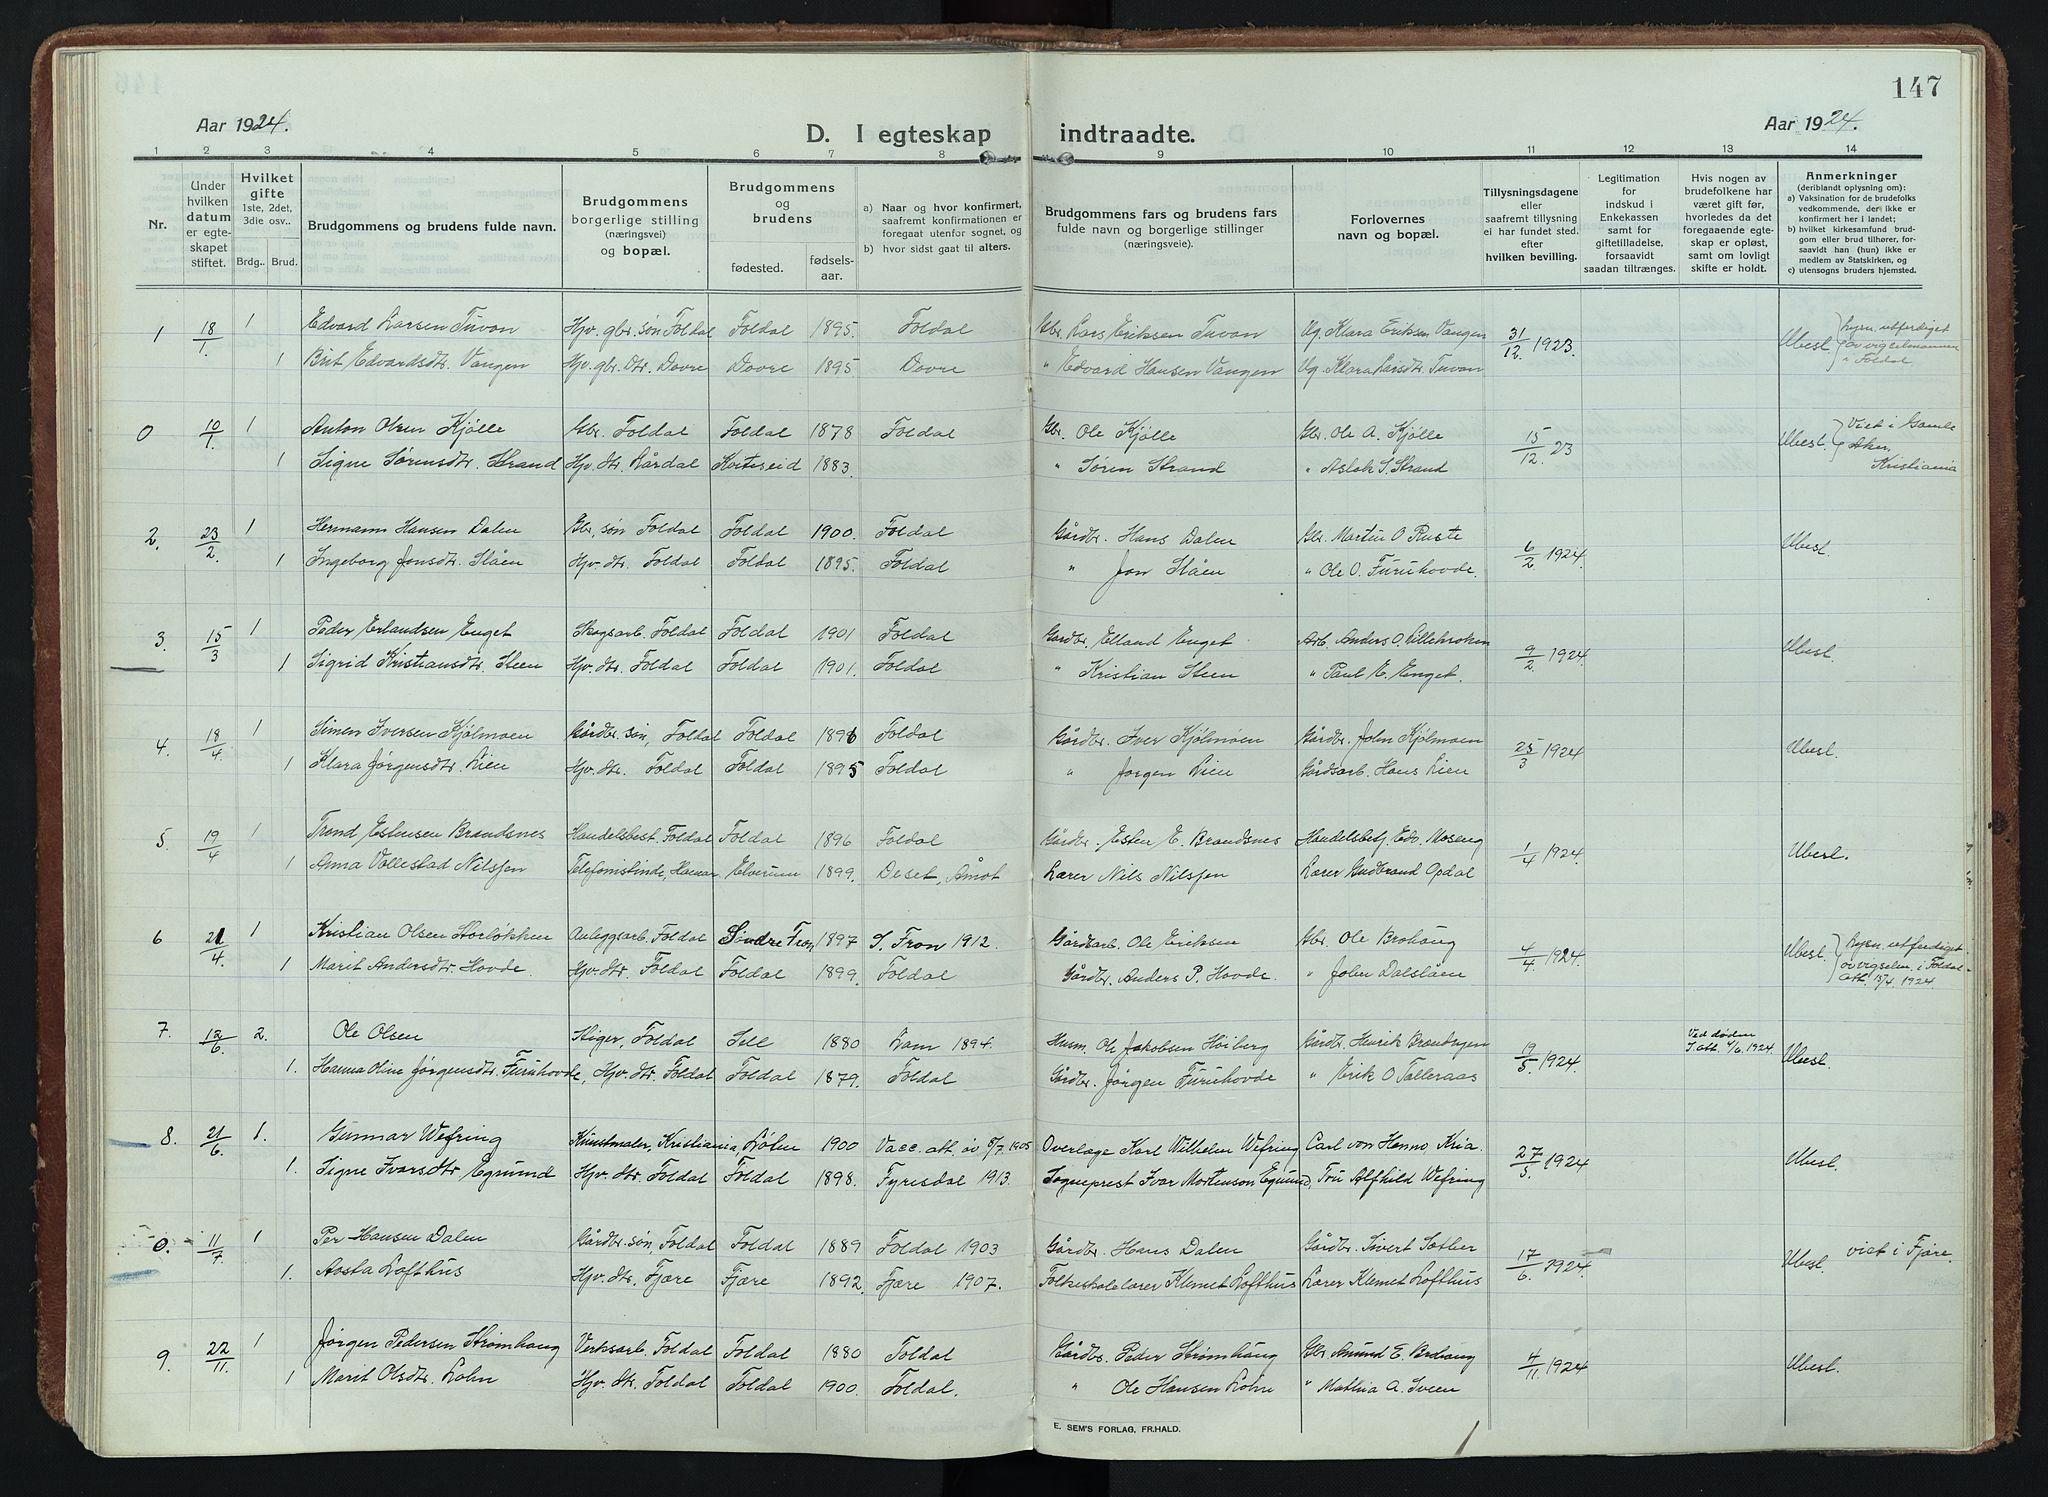 147
Aar 1924.
D. I egteskap indtraadte.
Aar 1924.
1 2 3 4 5 6 7 8 9 10 11 12 13 14
Nr.
Under hvilken datum er egteskapet stiftet.
Hvilket gifte 1ste, 2det, 3die osv..
Brdg.. Brud.
Brudgommens og brudens fulde navn.
Brudgommens borgerlige stilling (næringsvei) og bopæl.
Brudgommens og brudens
fødested. fødselsaar.
a) Naar og hvor konfirmert, saafremt konfirmationen er foregaat utenfor sognet, og
b) hvor sidst gaat til alters.
Brudgommens fars og brudens fars fulde navn og borgerlige stillinger (næringsveie).
Forlovernes navn og bopæl.
Tillysningsdagene eller saafremt tillysning ei har fundet sted. efter hvilken bevilling.
Legitimation for indskud i Enkekassen samt for giftetilladelse, forsaavidt saadan tiltrænges.
Hvis nogen av brudefolkene har været gift før, hvorledes da det foregaaende egteskap er opløst, samt om lovligt skifte er holdt.
Anmerkninger (deriblandt oplysning om): a) Vaksination for de brudefolks vedkommende, der ikke er konfirmert her i landet; b) hvilket kirkesamfund brudgom eller brud tilhører, forsaavidt han (hun) ikke er medlem av Statskirken, og c) utensogns bruders hjemsted.
1 18/1. 1 Edvard Larsen Tuvan Hjv. gbr. søn Foldal Foldal 1895. Foldal Gbr. Lars Eriksen Tuvan Ug. Klara Eriksen Vangen 31/12. 1923. Ubesl. Lysn. utferdiget av vigselmannen i Foldal
1 Brit Edvardsdtr. Vangen Hjv. gbr. dtr. Dovre Dovre 1895. Dovre " Edvard Hansen Vangen Ug. Klara Larsdtr. Tuvan
0 10/1. 1 Anton Olsen Kjølle Gbr. Foldal Foldal 1878 Foldal Gbr. Ole Kjølle Gbr. Ole A. Kjølle 15/12. 23 Ubesl. Viet i Gamle Aker, Kristiania
1 Signe Sørensdtr. Strand Hjv. dtr. Lårdal 1883. " Søren Strand " Aslak S. Strand
2. 23/2. 1 Hermann Hansen Dalen Gbr. søn Foldal Foldal 1900. Foldal Gårdbr. Hans Dalen Gbr. Martin O Ruste 6/2 1924. Ubesl.
1 Ingeborg Jonsdtr. Slåen Hjv. dtr. Foldal Foldal 1895. Foldal " Jon Slåen " Ole O. Furuhovde.
3. 15/3 1 Peder Erlandsen Enget Skogsarb. Foldal Foldal 1901 Foldal Gardbr. Elland Enget Arb. Anders O. Lillekroken 9/2. 1924. Ubesl.
1 Sigrid Kristiansdtr. Steen Hjv. dtr. Foldal Foldal 1901. Foldal " Kristian Steen " Paul E. Enget.
4. 18/4 1 Simen Iversen Kjølmoen Gårdbr. søn, Foldal Foldal 1898 Foldal Gårdbr. Iver Kjølmoen Gårdbr. John Kjølmoen 25/3 1924 Ubesl.
1 Klara Jørgensdtr. Lien Hjv. dtr. Foldal Foldal 1895 Foldal " Jørgen Lien Gårdsarb. Hans Lien
5. 19/4 1 Trond Estensen Brandsnes Handelsbest. Foldal Foldal 1896 Foldal Gårdbr. Esten E. Brandsnes Handelsbestj. Edv. Moseng 1/4 1924. Ubesl.
1 Anna Vollestad Nilssen Telefonistinde, Hamar Elverum 1899. Deset, Åmot Lærer Nils Nilssen Lærer Gudbrand Opdal
6 21/4. 1 Kristian Olsen Storløkken Anleggsarb. Foldal Søndre Fron 1897 S. Fron 1912. Gårdsarb. Ole Eriksen Gbr. Ole Brohaug 4/4. 1924. Ubesl. Lysn. utferdiget av vigselm. i Foldal att. 15/4. 1924.
1 Marit Andersdtr. Hovde Hjv. dtr. Foldal Foldal 1899. Foldal Gårdbr. Anders P. Hovde. " John Dalslåen
7. 12/6. 2. Ole Olsen Stiger, Foldal Sell 1880 Vam 1894. Husm. Ole Jakobsen Höiberg Gårdbr. Henrik Brandvgen 19/5. 1924 Ved døden S. att. 4/6. 1924. Ubesl.
1. Hanna Oline Jørgensdtr. Furuhovde, Hjv. dtr. Foldal Foldal 1879. Foldal Gårdbr. Jørgen Furuhovde " Erik O Tolleraas
8. 21/6. 1. Gunnar Wefring Kunstmaler, Kristiania, Løten 1900 Vacc. att. av 5/7. 1905 Overlæge Karl Wilhelm Wefring Carl von Hanno, Kria. 27/5. 1924 Ubesl.
1. Signe Ivarsdtr Egnund Hjv. dtr. Foldal Foldal 1898. Fyresdal 1913. Sogneprest Ivar Mortenson Egnund, Fru Alfhild Wefring
0. 11/7. 1 Per Hansen Dalen Gårdbr. søn, Foldal Foldal 1889 Foldal 1903 Gårdbr. Hans Dalen Gårdbr. Sivert Sæther 17/6. 1924 Ubesl. viet i Fjære.
1. Aasta Lofthus Hjv. dtr. Fjære Fjære 1892. Fjære 1907. Folkeskolelærer Klemet Lofthus Lærer Klemet Lofthus
9. 22/11. 1 Jørgen Pedersen Strømhaug Verksarb. Foldal Foldal 1880 Foldal Gårdbr. Peder Strømhaug Gbr. Amund E. Brohaug 4/11. 1924 Ubesl.
1 Marit Olsdtr. Lohn Hjv. dtr. Foldal Foldal 1900. Foldal. " Ole Hansen Lohn " Mathia A. Sveen
E. SEM'S FORLAG, FR.HALD.